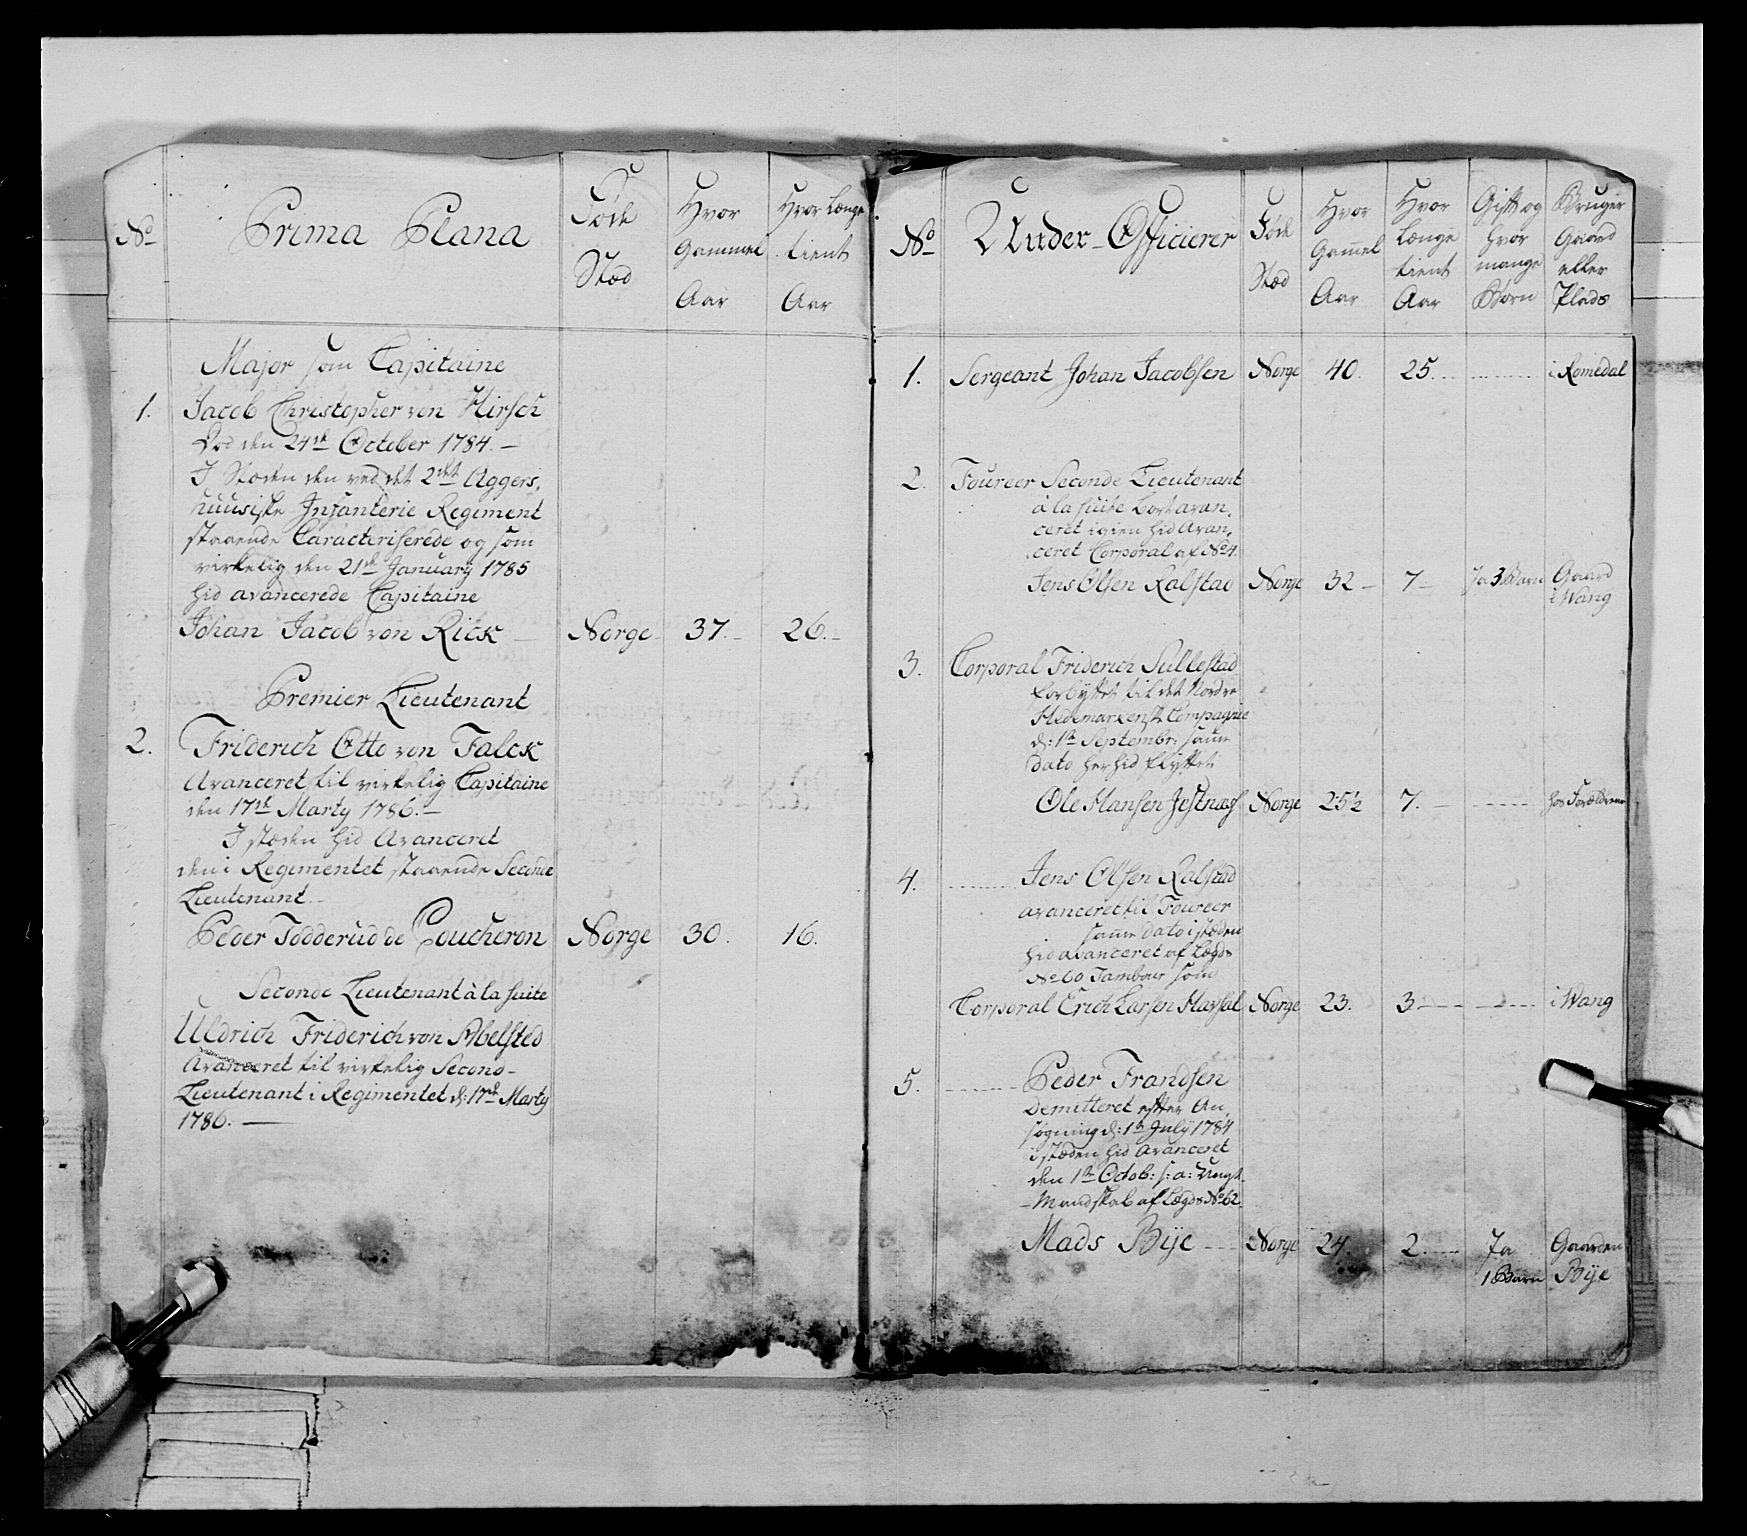 No
Prima Plana
Føde
Stæd
Hvor
Gammel
Aar
Hvor Længe
tient
Aar
Major som Capitaine
1.
Jacob Christopher von Hirsch
Død den 24de October 1784. —
I Stæden den ved det 2det Aggers,
huusiske Infanterie Regiment
staaende Caracteriserede og som
virkelig den 21de January 1785
hid avancerede Capitaine
Johan Jacob von Rick — Norge 37. 26.
Premier Lieutenant
2.
Friderich Otto von Falck
Avanceret til virkelig Capitaine
den 17de Marty 1786. —
I stæden hid Avanceret
den i Regimentet staaende Seconde
Lieutenant
Peder Todderud de Coucheron Norge 30. 16.
Seconde Lieutenant à la suite
Uldrich Friderich von Abelsted
Avanceret til virkelig Second-
Lieutenant i Regimentet d: 17de Marty
1786. —
No
Under-Officierer
Føde
Stæd
Hvor
Gamel
Aar
Hvor
Længe
tient
Aar
Gift og
hvor
mange
Børn
Bruger
Gaard
eller
Plads
1. Sergeant Johan Jacobsen Norge 40. 25. i Romedal
2. Foureer Seconde Lieutenant
à la suite bort avan,
ceret igien hid Avan,
ceret Corporal af No 4.
Jens Olsen Ralstad Norge 32 — 7 — Ja 3 Børn Gaard
i Wang
3. Corporal Friderich Sullestad
forbyttet til det Nordre
Hedemarkenske Compagnie
d: 1te Septembr: samme
dato herhid flyttet
Ole Hansen Jestnæss Norge 25½ 7. hos Forældrene
4. Jens Olsen Ralstad
avanceret til Foureer
samme dato i stæden
hid avanceret af Lægds
No 60 Tambour som
Corporal Erich Larsen Harsal Norge 23. 3 i Wang
5. Peder Frandsen
Demitteret efter An,
søgning d: 1te July 1784
i stæden hid Avanceret
den 1te Octob: s: a: Ungt
Mandskab af Lægds No 62
Mads Bÿe Norge 24. 2. Ja Gaarden
1 Barn Bÿe